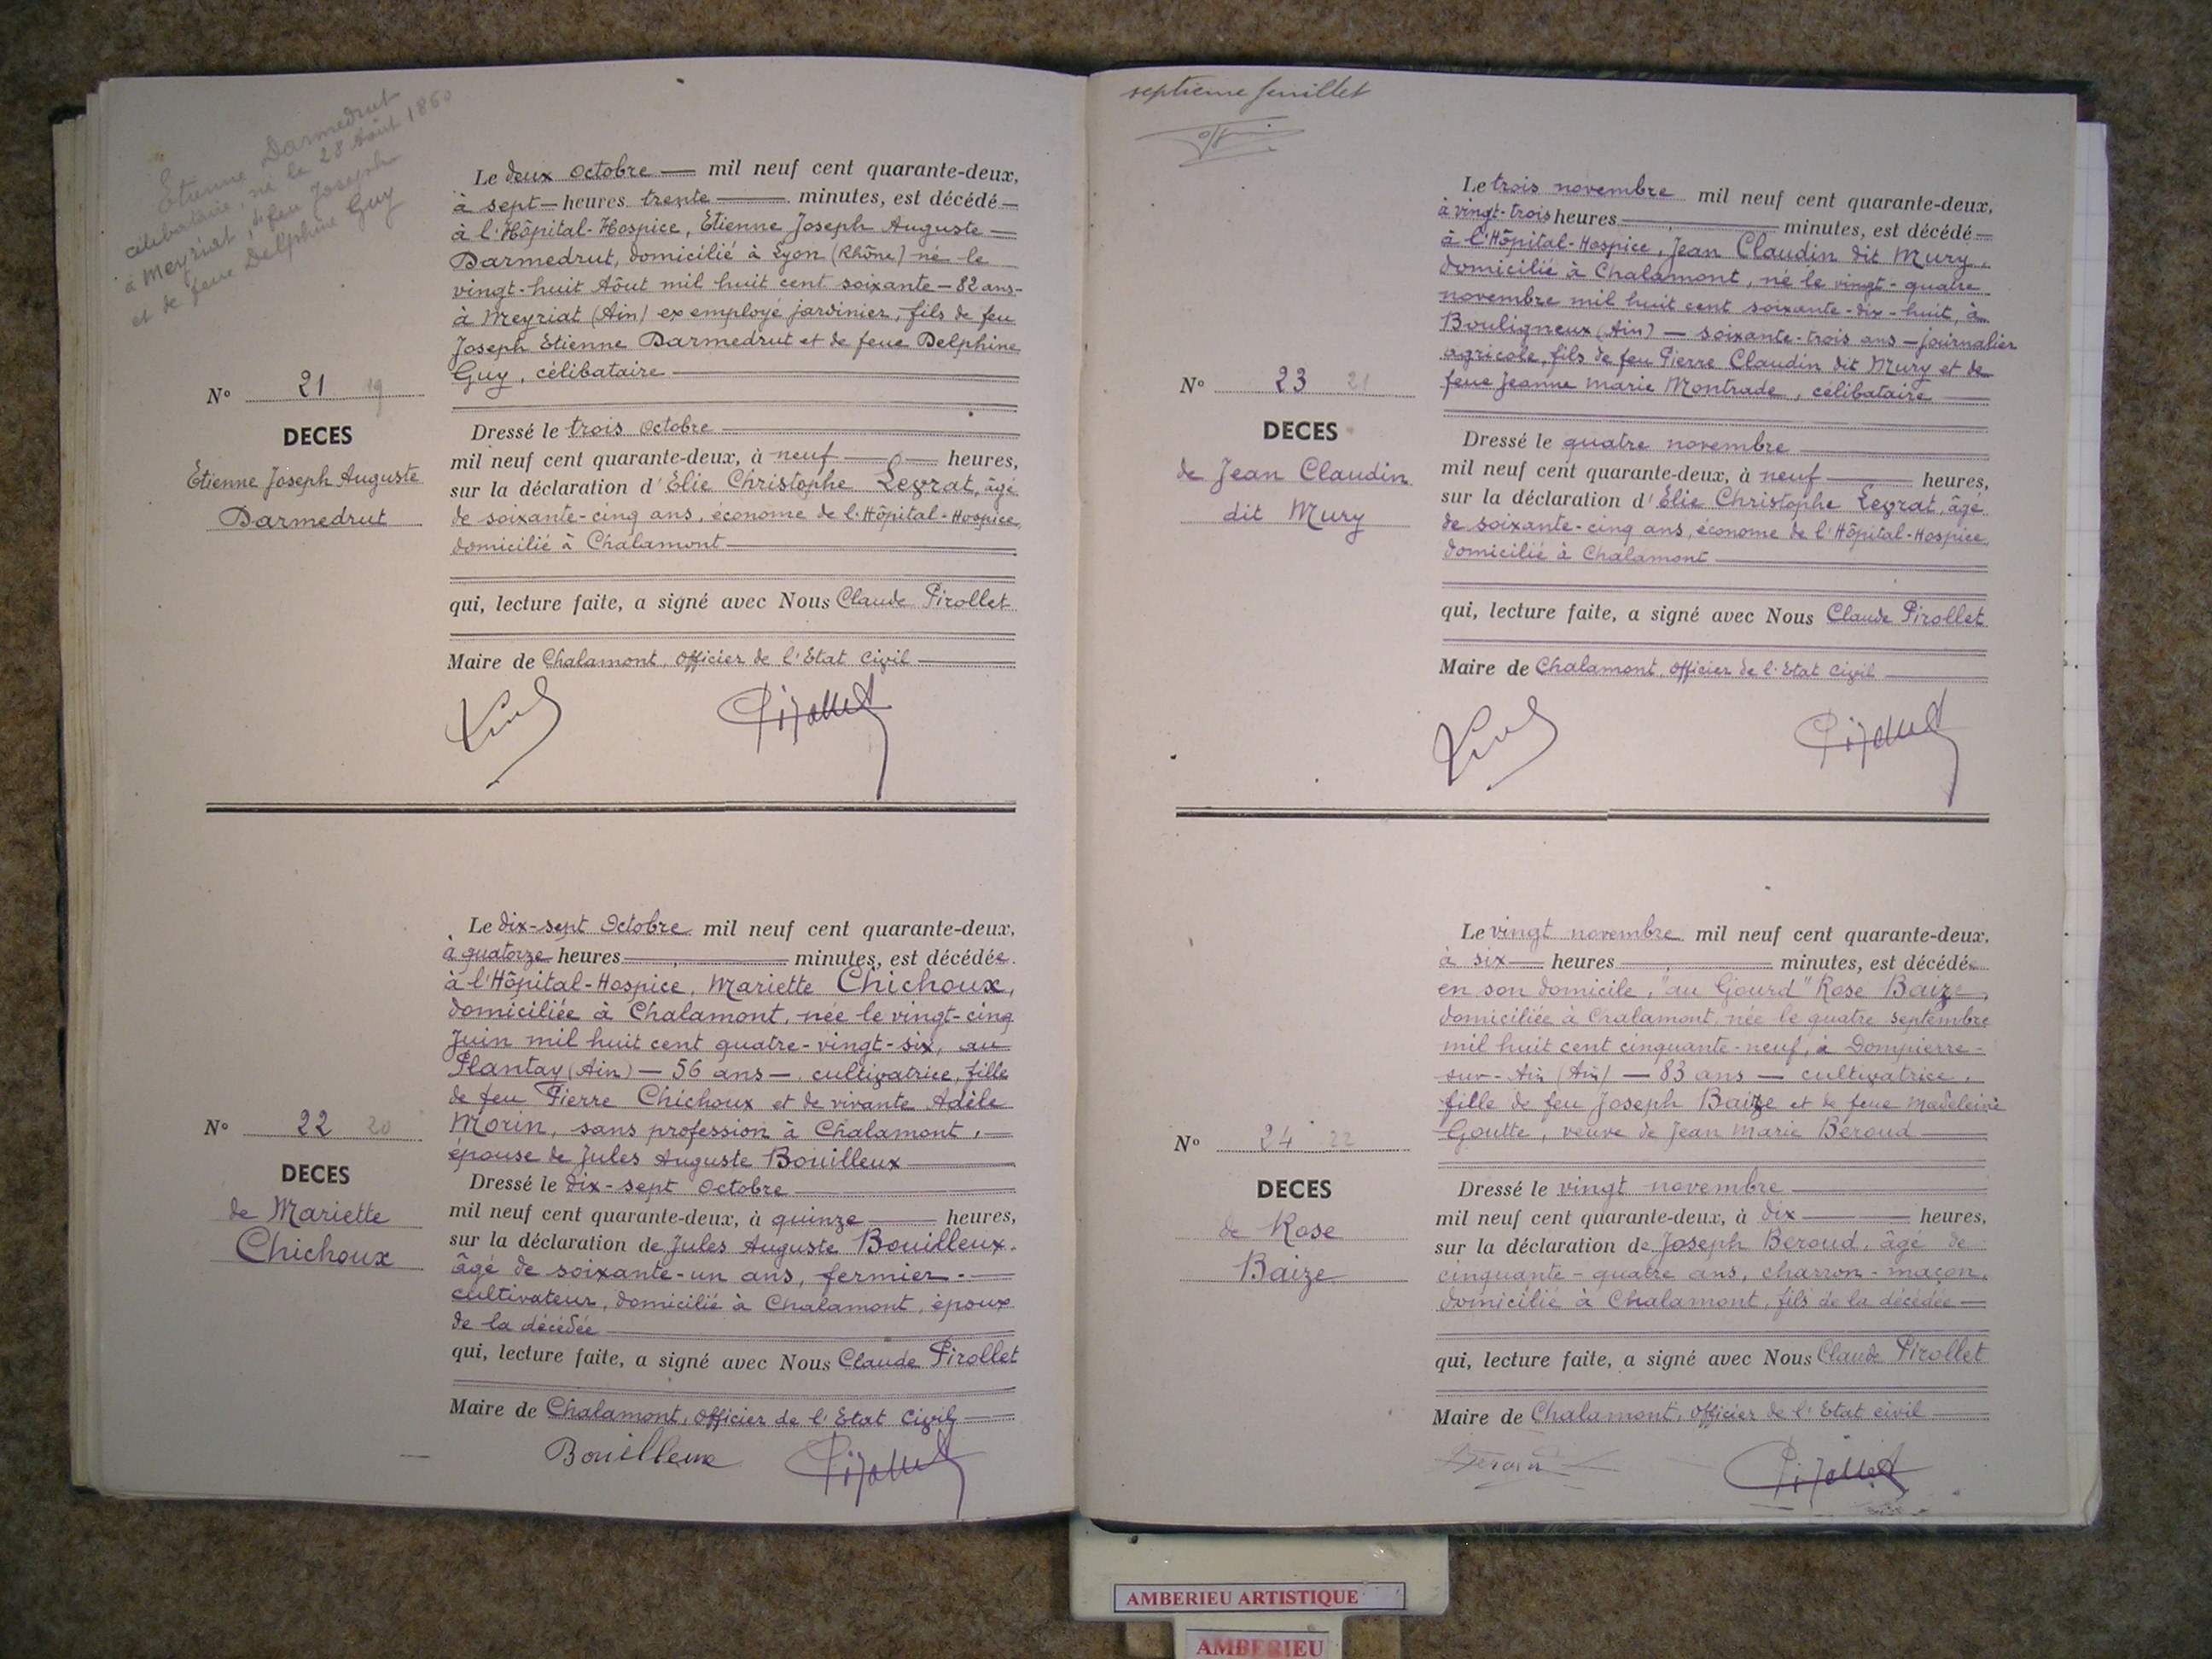 Etienne Darmedrut
célibataire, né le 28 Aôut 1860
à Meyriat, de feu Joseph
et de feue Delphine Guy
Le deux Octobre — mil neuf cent quarante-deux,
à sept — heures trente — minutes, est décédé —
à l'Hôpital-Hospice, Etienne Joseph Auguste —
Darmedrut, domicilié à Lyon (Rhône) né le
vingt-huit Aôut mil huit cent soixante — 82 ans -
à Meyriat (Ain) ex employé jardinier, fils de feu
Joseph Etienne Darmedrut et de feue Delphine
Guy, célibataire —
N° 21 19
DECES
Etienne Joseph Auguste
Darmedrut
Dressé le trois Octobre —
mil neuf cent quarante-deux, à neuf — heures,
sur la déclaration d'Elie Christophe Legrat, âgé
de soixante-cinq ans, économe de l'Hôpital-Hospice,
domicilié à Chalamont —
qui, lecture faite, a signé avec Nous Claude Pirollet
Maire de Chalamont, Officier de l'Etat Civil —
Pirollet
Le dix-sept Octobre mil neuf cent quarante-deux,
à quatorze heures — minutes, est décédée.
à l'Hôpital-Hospice, Mariette Chichoux,
domiciliée à Chalamont, née le vingt-cinq
Juin mil huit cent quatre-vingt-six, au
Plantay (Ain) — 56 ans — cultivatrice, fille
de feu Pierre Chichoux et de vivante Adèle
Morin, sans profession à Chalamont, —
épouse de Jules Auguste Bouilleux —
N° 22 20
DECES
de Mariette
Chichoux
Dressé le dix-sept Octobre —
mil neuf cent quarante-deux, à quinze — heures,
sur la déclaration de Jules Auguste Bouilleux.
âgé de soixante-un ans, fermier - —
cultivateur, domicilié à Chalamont, époux
de la décédée —
qui, lecture faite, a signé avec Nous Claude Pirollet
Maire de Chalamont, Officier de l'Etat Civil —
Bouilleux Pirollet
septième feuillet
Le trois novembre mil neuf cent quarante-deux,
à vingt-trois heures — minutes, est décédé —
à l'Hôpital-Hospice, Jean Claudin dit Mury,
domicilié à Chalamont, né le vingt-quatre
novembre mil huit cent soixante-dix-huit, à
Bouligneux (Ain) — soixante-trois ans — journalier
agricole, fils de feu Pierre Claudin dit Mury et de
feue Jeanne Marie Montrade, célibataire —
N° 23 21
DECES
de Jean Claudin
dit Mury
Dressé le quatre novembre —
mil neuf cent quarante-deux, à neuf — heures,
sur la déclaration d'Elie Christophe Legrat, âgé
de soixante-cinq ans, économe de l'Hôpital-Hospice
domicilié à Chalamont —
qui, lecture faite, a signé avec Nous Claude Pirollet
Maire de Chalamont, Officier de l'Etat Civil —
Pirollet
Le vingt novembre mil neuf cent quarante-deux,
à six — heures — minutes, est décédée
en son domicile, "au Gourd" Rose Baize,
domiciliée à Chalamont, née le quatre septembre
mil huit cent cinquante-neuf, à Dompierre-
sur-Ain (Ain) — 83 ans — cultivatrice,
fille de feu Joseph Baize et de feue Madeleine
Goutte, veuve de Jean Marie Béroud —
N° 24 22
DECES
de Rose
Baize
Dressé le vingt novembre —
mil neuf cent quarante-deux, à dix — heures,
sur la déclaration de Joseph Béroud, âgé de
cinquante-quatre ans, charron-maçon,
domicilié à Chalamont, fils de la décédée —
qui, lecture faite, a signé avec Nous Claude Pirollet
Maire de Chalamont, Officier de l'Etat civil —
Béroud Pirollet
AMBERIEU ARTISTIQUE
AMBERIEU